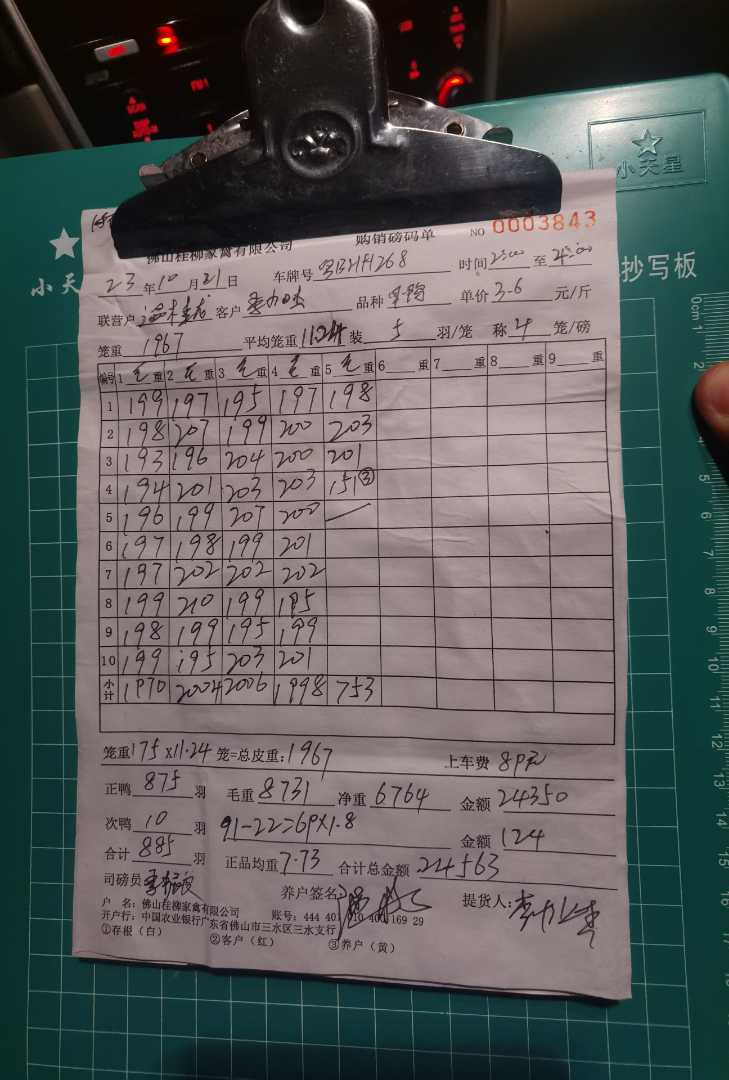 小天星
佛山桂柳家禽有限公司 购销磅码单 NO 0003843
小天
抄写板
23年10月21日 车牌号 时间 至
联营户 客户 品种 单价3-6元/斤
笼重1967 平均笼重11.24 装5羽/笼 称4笼/磅
编号 1毛重 2毛重 3毛重 4毛重 5毛重 6重 7重 8重 9重
1 199 197 195 197 198
2 198 207 199 200 203
3 193 196 204 200 201
4 194 201 203 203 151③
5 196 199 207 200
6 197 198 199 201
7 197 202 202 202
8 199 210 199 195
9 198 199 195 199
10 199 195 203 201
小计 1970 2004 2006 1998 753
笼重175×11.24笼=总皮重:1967 上车费89元
正鸭875羽 毛重8731 净重6764 金额24350
次鸭10羽 91-22=69×1.8 金额124
合计885羽 正品均重7.73 合计总金额24563
司磅员 养户签名 提货人:
户 名:佛山桂柳家禽有限公司 账号:444 401 10 40 169 29
开户行:中国农业银行广东省佛山市三水区三水支行
①存根(白) ②客户(红) ③养户(黄)
0cm 1
2
4
5
6
7
8
9
10
11
12
13
14
15
16
17
18